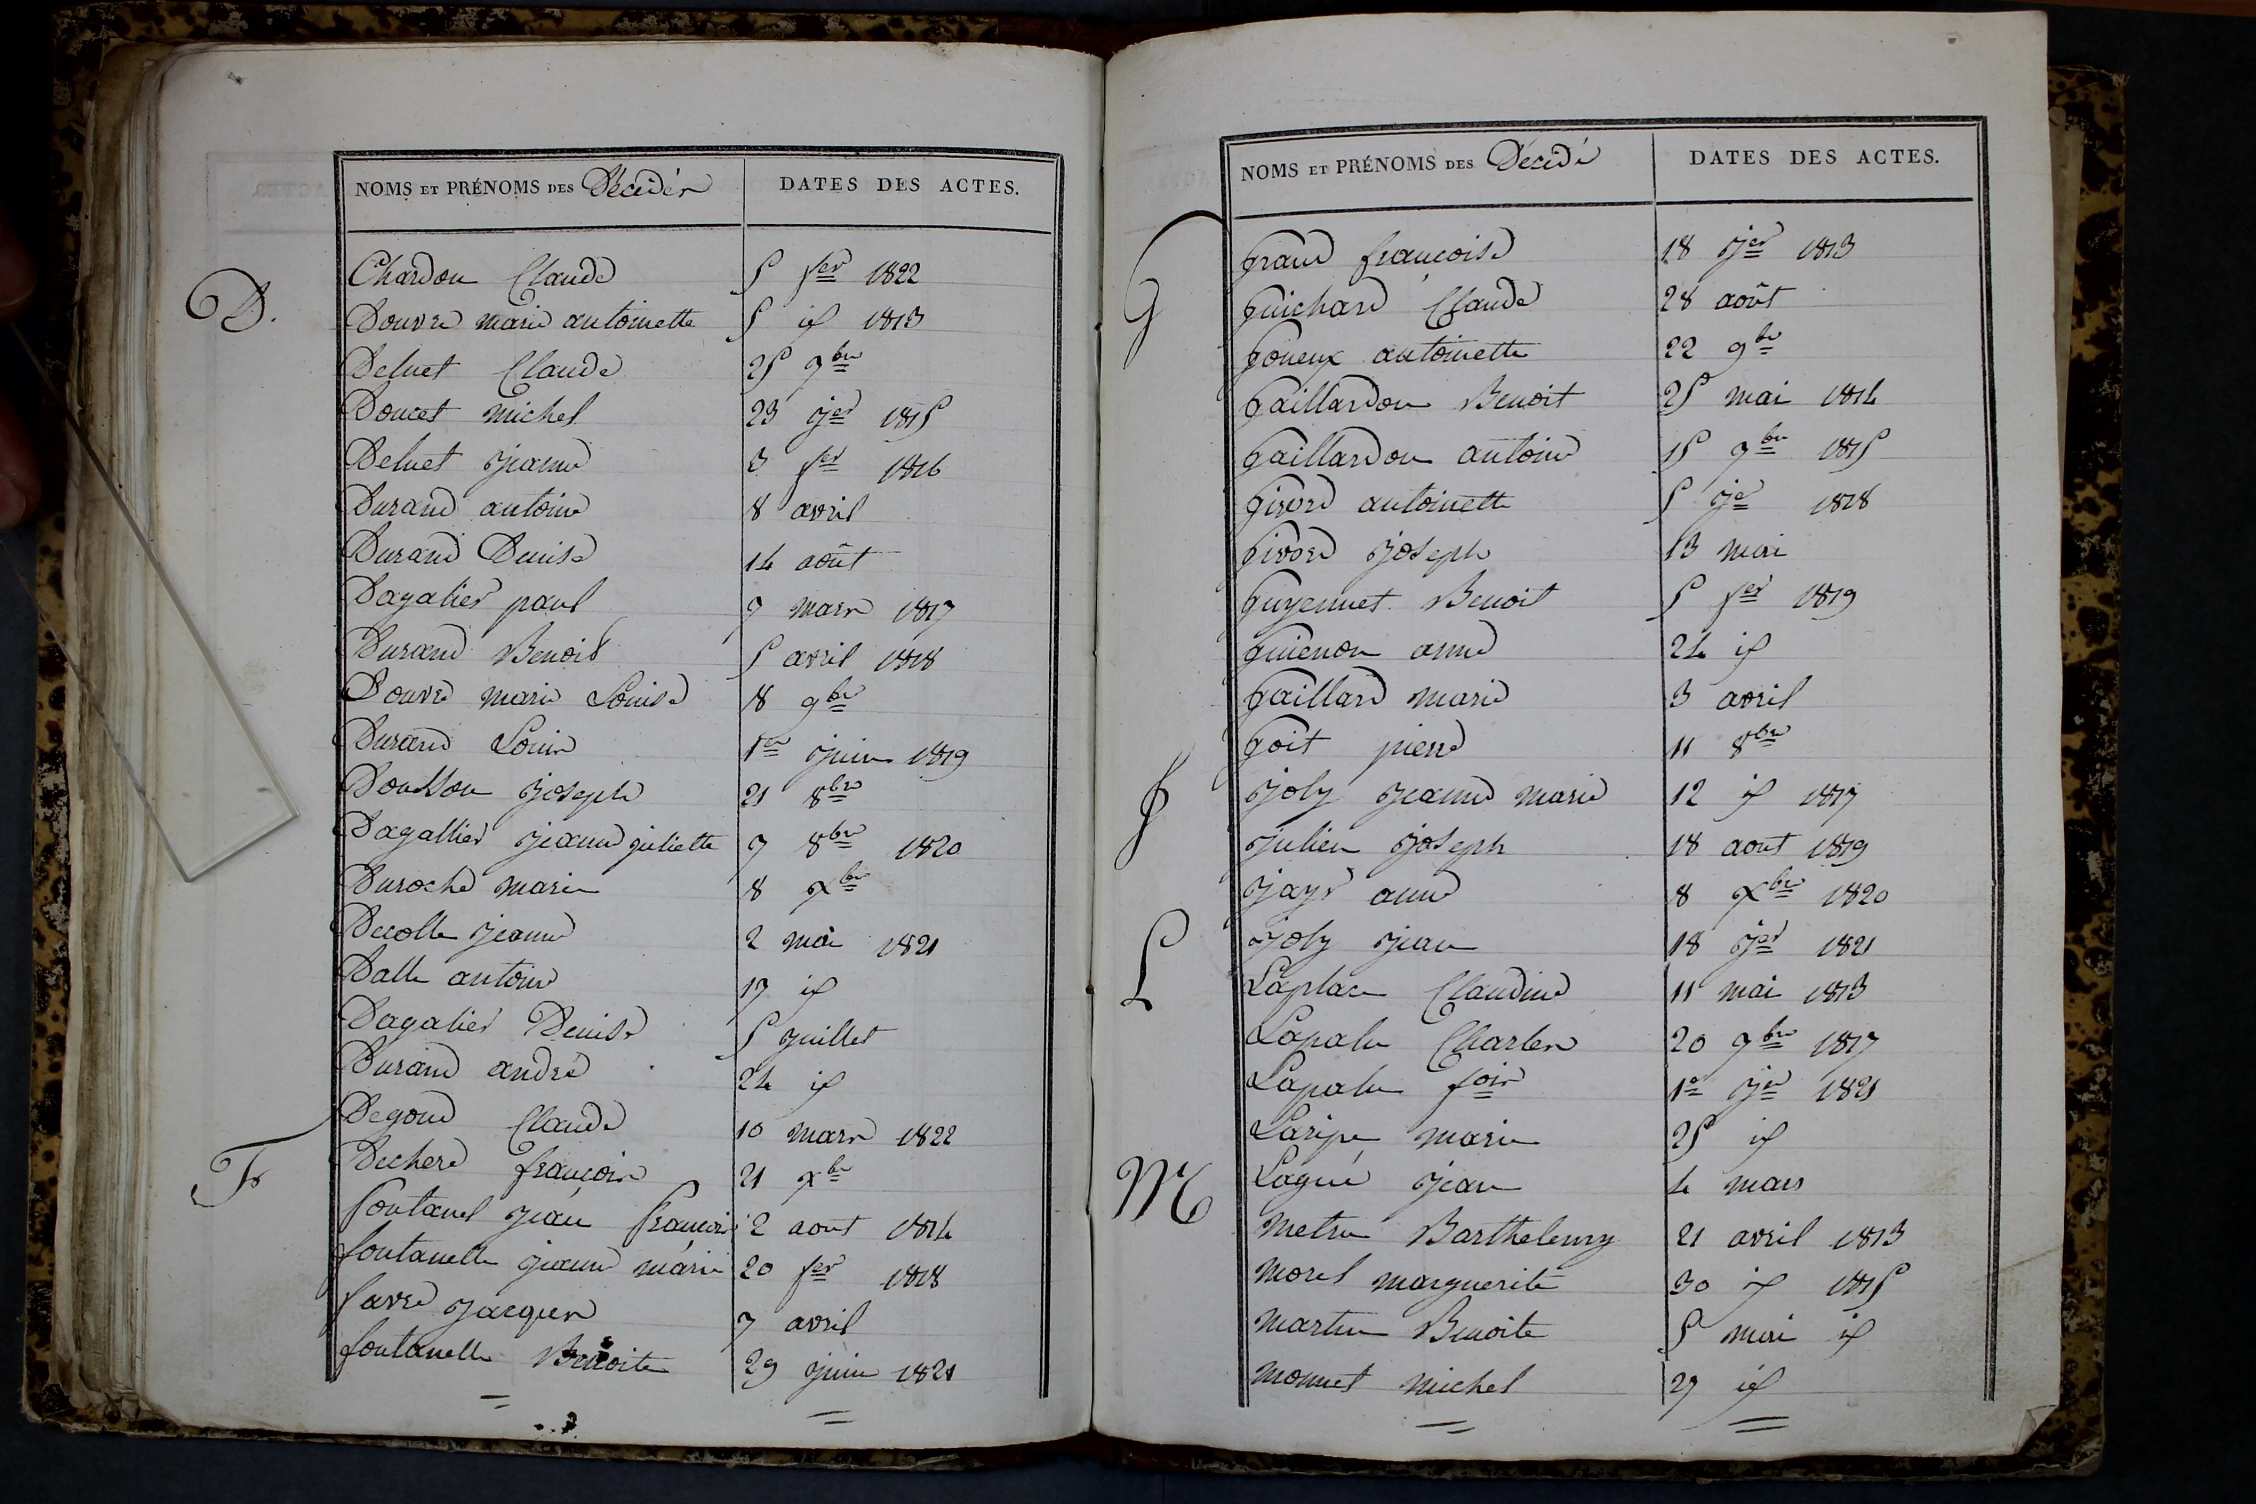 NOMS ET PRÉNOMS DES Décédés
DATES DES ACTES.
Chardon Claude 5 fer 1822
D.
Douvre marie antoinette 5 id 1813
Deluet Claude 25 9bre
Doucet michel 23 jer 1815
Deluet Jeanne 3 fer 1816
Durand antoine 8 avril
Durand Denise 14 août
Dagalier paul 9 mars 1817
Durand Benoit 5 avril 1818
Douvre marie Louise 8 9bre
Durand Louis 1er Juin 1819
Dousson Joseph 21 8bre
Dagallier Jeanne juliette 7 8bre 1820
Duroche marie 8 xbre
Decolle Jeanne 2 mai 1821
Dalle antoine 17 id
Dagalier Denise 5 Juillet
Durand andré 24 id
Degoud Claude 10 mars 1822
Dechere françois 21 xbre
F
fontanel Jean françois 2 aout 1814
fontanelle jeanne marie 20 fer 1818
favre Jacques 7 avril
fontanelle Benoite 29 Juin 1821
NOMS ET PRÉNOMS DES Décédé
DATES DES ACTES.
G
Grand françoise 18 jer 1813
Guichard Claude 28 août
Goueux antoinette 22 9bre
Gaillardon Benoit 25 mai 1814
Gaillardon antoine 15 9bre 1815
Givord antoinette 5 je 1818
Givord Joseph 13 mai
Guyennet Benoit 5 fer 1819
Guienon anne 24 id
Gaillard marie 3 avril
Goit pierre 11 8bre
J
Joly Jeanne marie 12 id 1817
Julien Joseph 18 aout 1819
Jayr anne 8 xbre 1820
Joly Jean 18 jer 1821
L
Laplace Claudine 11 mai 1813
Lapalu Charles 20 9bre 1817
Lapalu fois 1er jer 1821
Laripe marie 25 id
Lagué Jean 4 mars
M
Metra Barthelemy 21 avril 1813
Morel marguerite 30 id 1815
Martin Benoite 5 mai id
Monnet michel 27 id